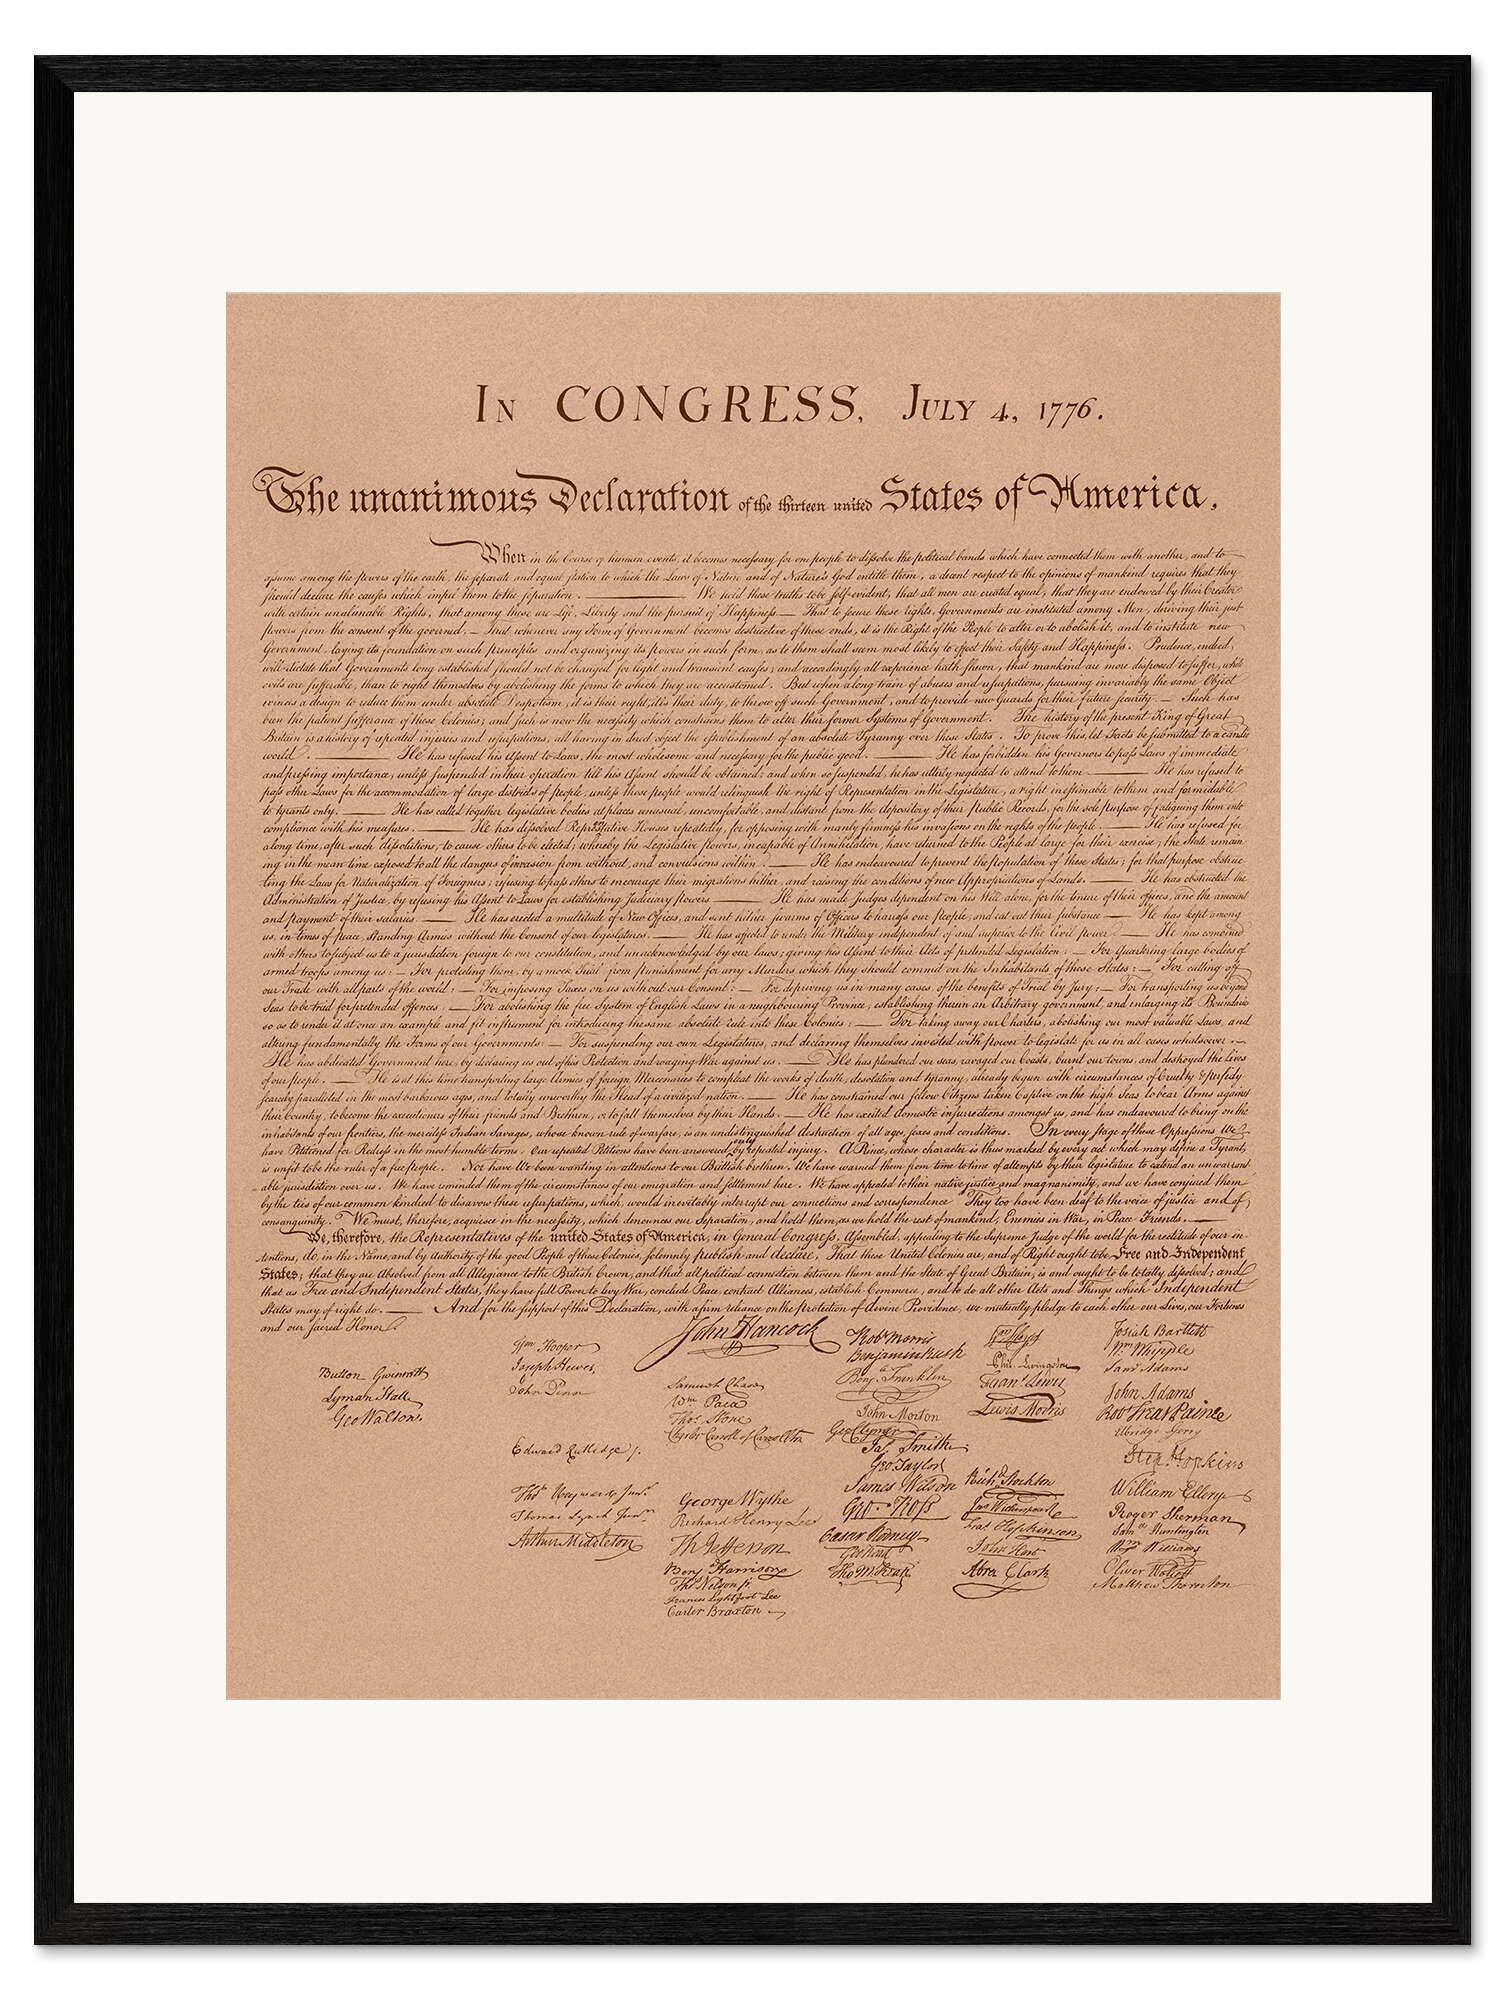 In CONGRESS, July 4, 1776.
The unanimous Declaration of the thirteen united States of America,
When in the Course of human events, it becomes necessary for one people to dissolve the political bands which have connected them with another, and to
assume among the powers of the earth, the separate and equal station to which the Laws of Nature and of Nature's God entitle them, a decent respect to the opinions of mankind requires that they
should declare the causes which impel them to the separation. — We hold these truths to be self-evident, that all men are created equal, that they are endowed by their Creator
with certain unalienable Rights, that among these are Life, Liberty and the pursuit of Happiness — That to secure these rights, Governments are instituted among Men, deriving their just
powers from the consent of the governed, — That whenever any Form of Government becomes destructive of these ends, it is the Right of the People to alter or to abolish it, and to institute new
Government, laying its foundation on such principles and organizing its powers in such form, as to them shall seem most likely to effect their Safety and Happiness. Prudence, indeed,
will dictate that Governments long established should not be changed for light and transient causes; and accordingly all experience hath shewn, that mankind are more disposed to suffer, while
evils are sufferable, than to right themselves by abolishing the forms to which they are accustomed. But when a long train of abuses and usurpations, pursuing invariably the same Object
evinces a design to reduce them under absolute Despotism, it is their right, it is their duty, to throw off such Government, and to provide new Guards for their future security. — Such has
been the patient sufferance of these Colonies; and such is now the necessity which constrains them to alter their former Systems of Government. The history of the present King of Great
Britain is a history of repeated injuries and usurpations, all having in direct object the establishment of an absolute Tyranny over these States. To prove this, let Facts be submitted to a candid
world. — He has refused his Assent to Laws, the most wholesome and necessary for the public good. — He has forbidden his Governors to pass Laws of immediate
and pressing importance, unless suspended in their operation till his Assent should be obtained; and when so suspended, he has utterly neglected to attend to them. — He has refused to
pass other Laws for the accommodation of large districts of people, unless those people would relinquish the right of Representation in the Legislature, a right inestimable to them and formidable
to tyrants only. — He has called together legislative bodies at places unusual, uncomfortable, and distant from the depository of their Public Records, for the sole purpose of fatiguing them into
compliance with his measures. — He has dissolved Representative Houses repeatedly, for opposing with manly firmness his invasions on the rights of the people. — He has refused for
a long time, after such dissolutions, to cause others to be elected; whereby the Legislative powers, incapable of Annihilation, have returned to the People at large for their exercise; the State remain
ing in the mean time exposed to all the dangers of invasion from without, and convulsions within. — He has endeavoured to prevent the population of these States; for that purpose obstruc
ting the Laws for Naturalization of Foreigners; refusing to pass others to encourage their migrations hither, and raising the conditions of new Appropriations of Lands. — He has obstructed the
Administration of Justice, by refusing his Assent to Laws for establishing Judiciary powers — He has made Judges dependent on his Will alone, for the tenure of their offices, and the amount
and payment of their salaries. — He has erected a multitude of New Offices, and sent hither swarms of Officers to harrass our people, and eat out their substance — He has kept among
us, in times of peace, Standing Armies without the Consent of our legislatures. — He has affected to render the Military independent of and superior to the Civil power — He has combined
with others to subject us to a jurisdiction foreign to our constitution, and unacknowledged by our laws; giving his Assent to their Acts of pretended Legislation: — For Quartering large bodies of
armed troops among us: — For protecting them, by a mock Trial from punishment for any Murders which they should commit on the Inhabitants of these States: — For cutting off
our Trade with all parts of the world: — For imposing Taxes on us without our Consent: — For depriving us in many cases, of the benefits of Trial by Jury: — For transporting us beyond
Seas to be tried for pretended offences: — For abolishing the free System of English Laws in a neighbouring Province, establishing therein an Arbitrary government, and enlarging its Boundaries
so as to render it at once an example and fit instrument for introducing the same absolute rule into these Colonies: — For taking away our Charters, abolishing our most valuable Laws, and
altering fundamentally the Forms of our Governments: — For suspending our own Legislatures, and declaring themselves invested with power to legislate for us in all cases whatsoever. —
He has abdicated Government here, by declaring us out of his Protection and waging War against us. — He has plundered our seas, ravaged our Coasts, burnt our towns, and destroyed the Lives
of our people. — He is at this time transporting large Armies of foreign Mercenaries to compleat the works of death, desolation and tyranny, already begun with circumstances of Cruelty & perfidy
scarcely paralleled in the most barbarous ages, and totally unworthy the Head of a civilized nation. — He has constrained our fellow Citizens taken Captive on the high Seas to bear Arms against
their Country, to become the executioners of their friends and Brethren, or to fall themselves by their Hands. — He has excited domestic insurrections amongst us, and has endeavoured to bring on the
inhabitants of our frontiers, the merciless Indian Savages, whose known rule of warfare, is an undistinguished destruction of all ages, sexes and conditions. In every stage of these Oppressions We
have Petitioned for Redress in the most humble terms: Our repeated Petitions have been answered only by repeated injury. A Prince, whose character is thus marked by every act which may define a Tyrant,
is unfit to be the ruler of a free people. Nor have We been wanting in attentions to our Brittish brethren. We have warned them from time to time of attempts by their legislature to extend an unwarrant
able jurisdiction over us. We have reminded them of the circumstances of our emigration and settlement here. We have appealed to their native justice and magnanimity, and we have conjured them
by the ties of our common kindred to disavow these usurpations, which, would inevitably interrupt our connections and correspondence They too have been deaf to the voice of justice and of
consanguinity. We must, therefore, acquiesce in the necessity, which denounces our Separation, and hold them, as we hold the rest of mankind, Enemies in War, in Peace Friends. —
We, therefore, the Representatives of the united States of America, in General Congress, Assembled, appealing to the Supreme Judge of the world for the rectitude of our in-
tentions, do, in the Name, and by Authority of the good People of these Colonies, solemnly publish and declare, That these United Colonies are, and of Right ought to be Free and Independent
States; that they are Absolved from all Allegiance to the British Crown, and that all political connection between them and the State of Great Britain, is and ought to be totally dissolved; and
that as Free and Independent States, they have full Power to levy War, conclude Peace, contract Alliances, establish Commerce, and to do all other Acts and Things which Independent
States may of right do. — And for the support of this Declaration, with a firm reliance on the protection of divine Providence, we mutually pledge to each other our Lives, our Fortunes
and our sacred Honor.
Button Gwinnett
Lyman Hall
Geo Walton.
Wm Hooper
Joseph Hewes,
John Penn
Edward Rutledge /.
Thos Heyward Junr.
Thomas Lynch Junr.
Arthur Middleton
John Hancock
Samuel Chase
Wm Paca
Thos Stone
Charles Carroll of Carrollton
George Wythe
Richard Henry Lee
Th Jefferson
Benj Harrison
Thos Nelson jr.
Francis Lightfoot Lee
Carter Braxton
Robt Morris
Benjamin Rush
Benj. Franklin
John Morton
Geo Clymer
Jas. Smith
Geo. Taylor
James Wilson
Geo. Ross
Caesar Rodney
Geo Read
Tho M:Kean
Wm Floyd
Phil. Livingston
Frans. Lewis
Lewis Morris
Richd. Stockton
Jno Witherspoon
Fras. Hopkinson
John Hart
Abra Clark
Josiah Bartlett
Wm Whipple
Saml Adams
John Adams
Robt Treat Paine
Elbridge Gerry
Step. Hopkins
William Ellery
Roger Sherman
Saml Huntington
Wm Williams
Oliver Wolcott
Matthew Thornton